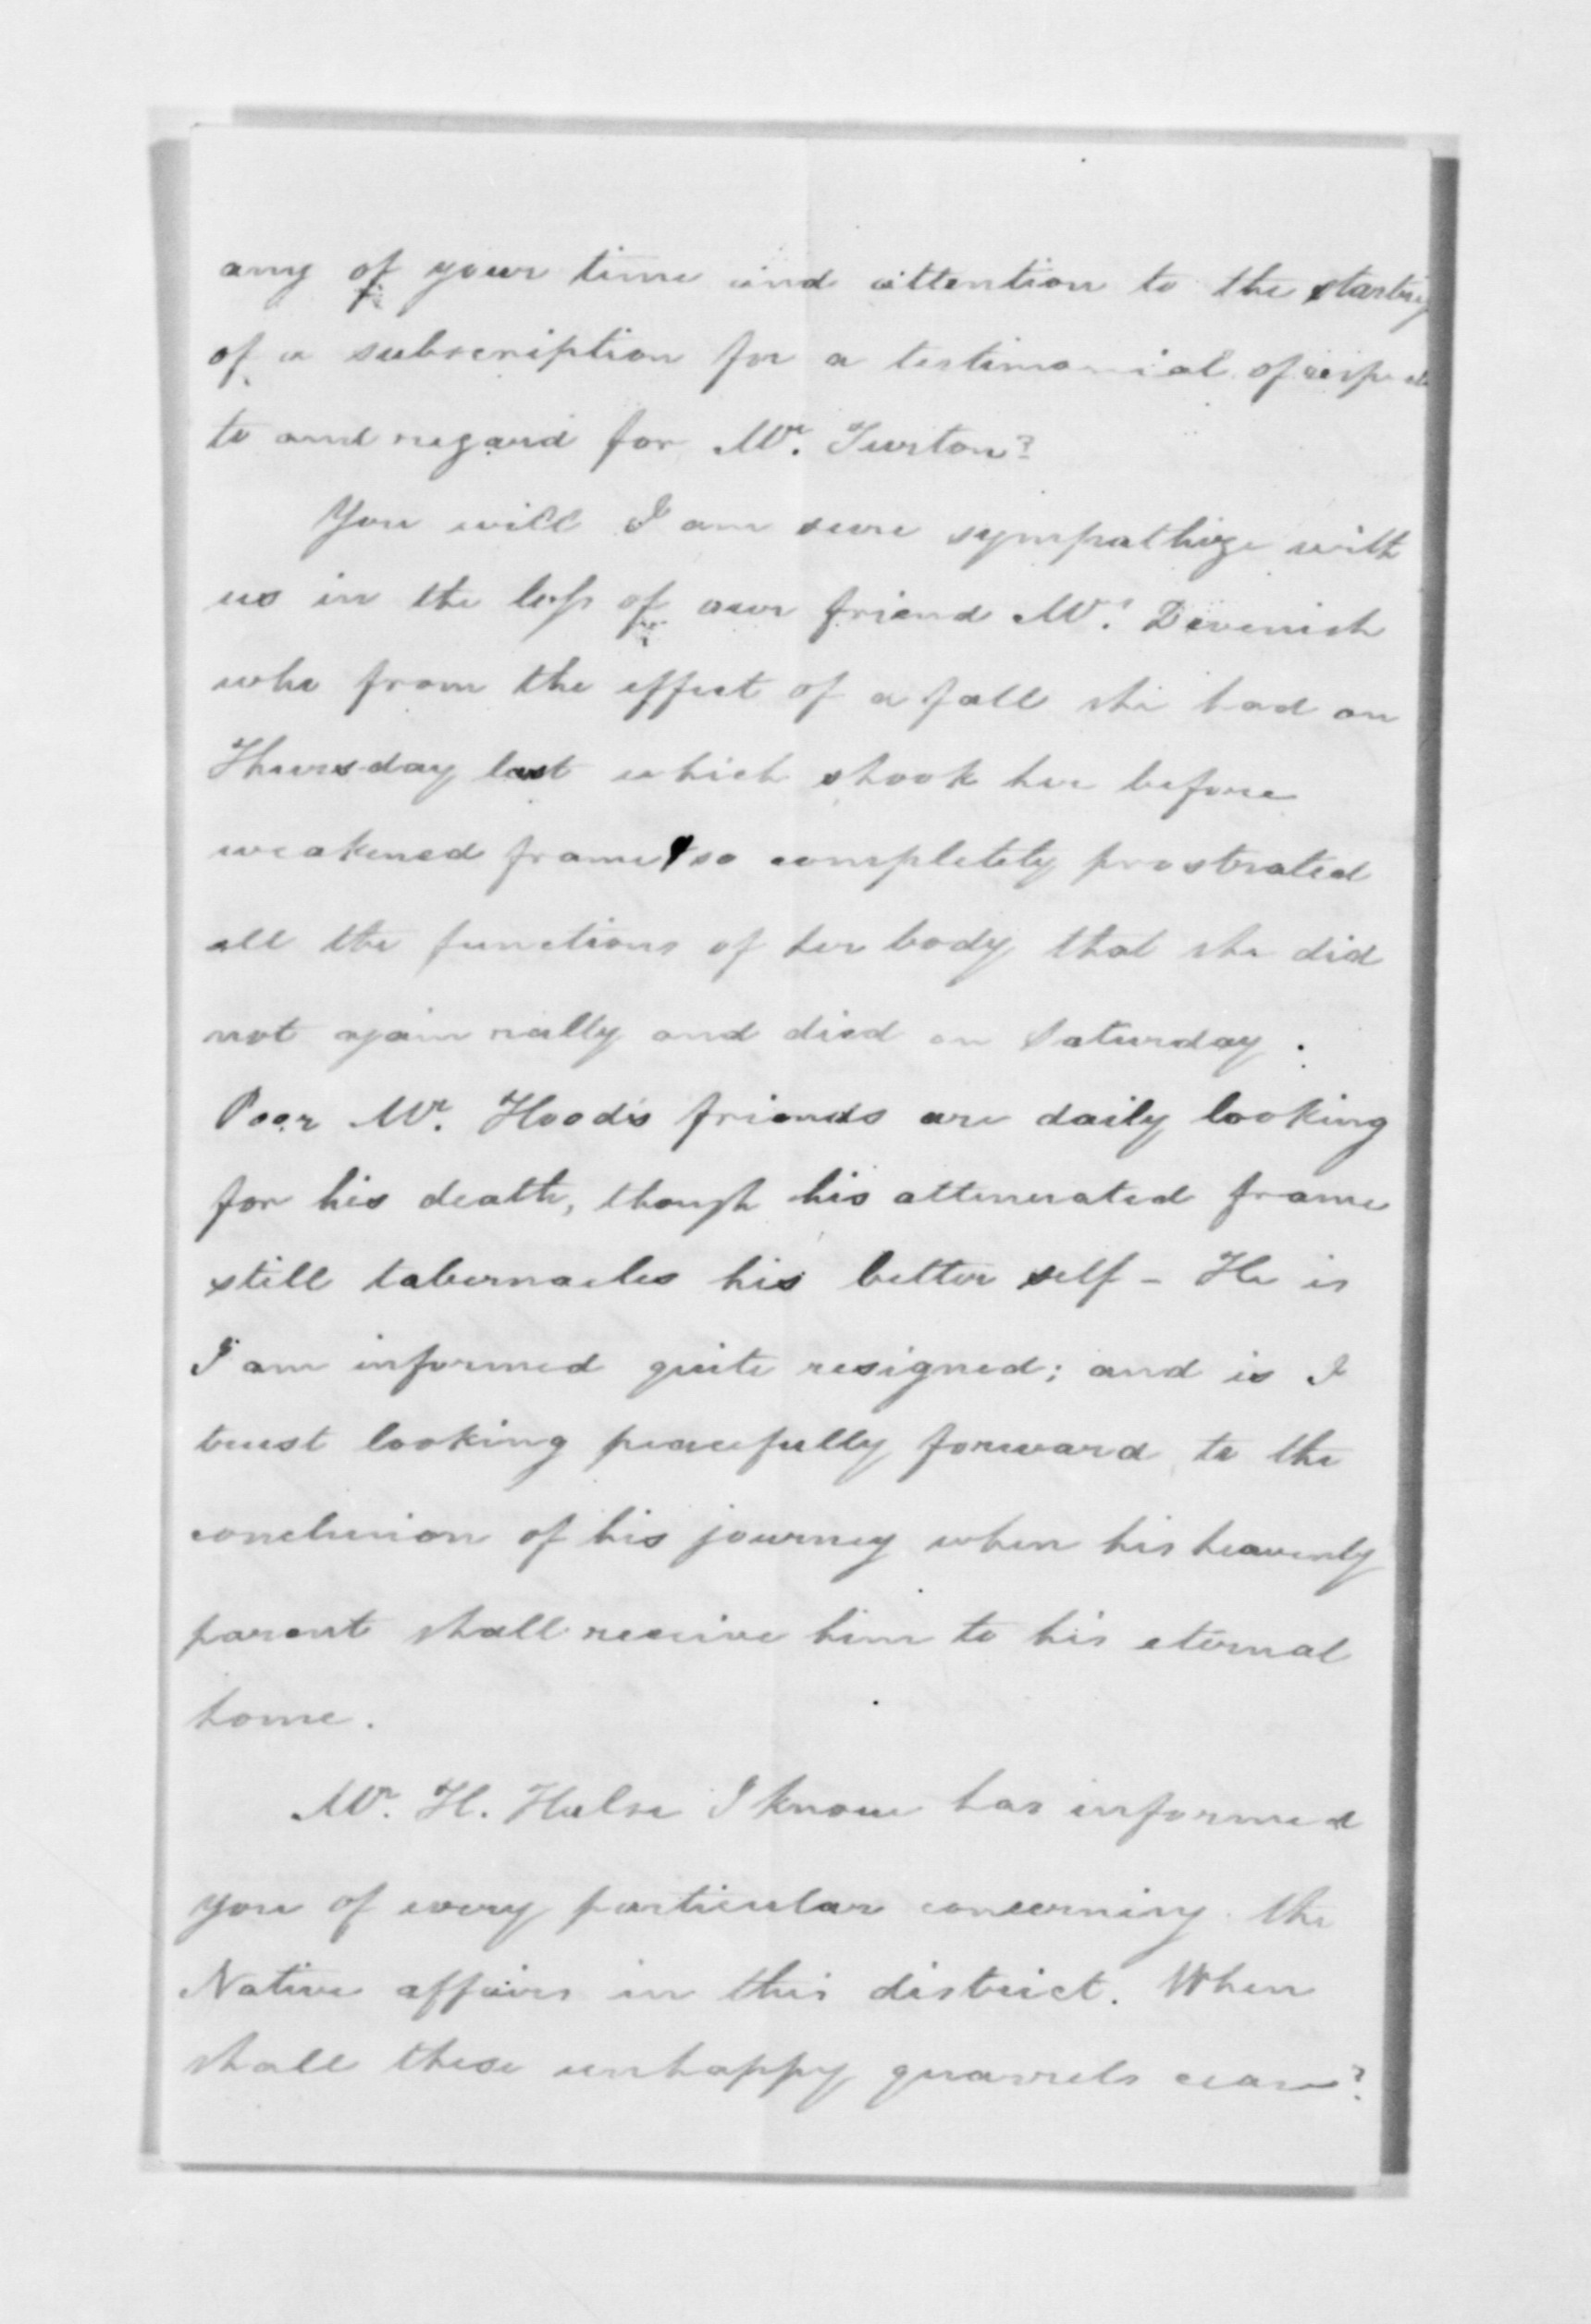 any of your time and attention to the starting
of a subscription for a testimonial of respect
to and regard for Mr. Turton?
You will I am sure sympathize with
us in the loss of our friend Mrs. Devenish
who from the effect of a fall she had on
Thursday last which shook her before
weakened frame so completely prostrated
all the functions of her body that she did
not again rally and died on Saturday.
Poor Mr. Hood's friends are daily looking
for his death, though his attenuated frame
still tabernacles his better self - He is
I am informed quite resigned; and is I
trust looking peacefully forward to the
conclusion of his journey when his heavenly
parent shall receive him to his eternal
home.
Mr. H. Hulse I know has informed
you of every particular concerning the
Native affairs in this district. When
shall these unhappy quarrels cease?